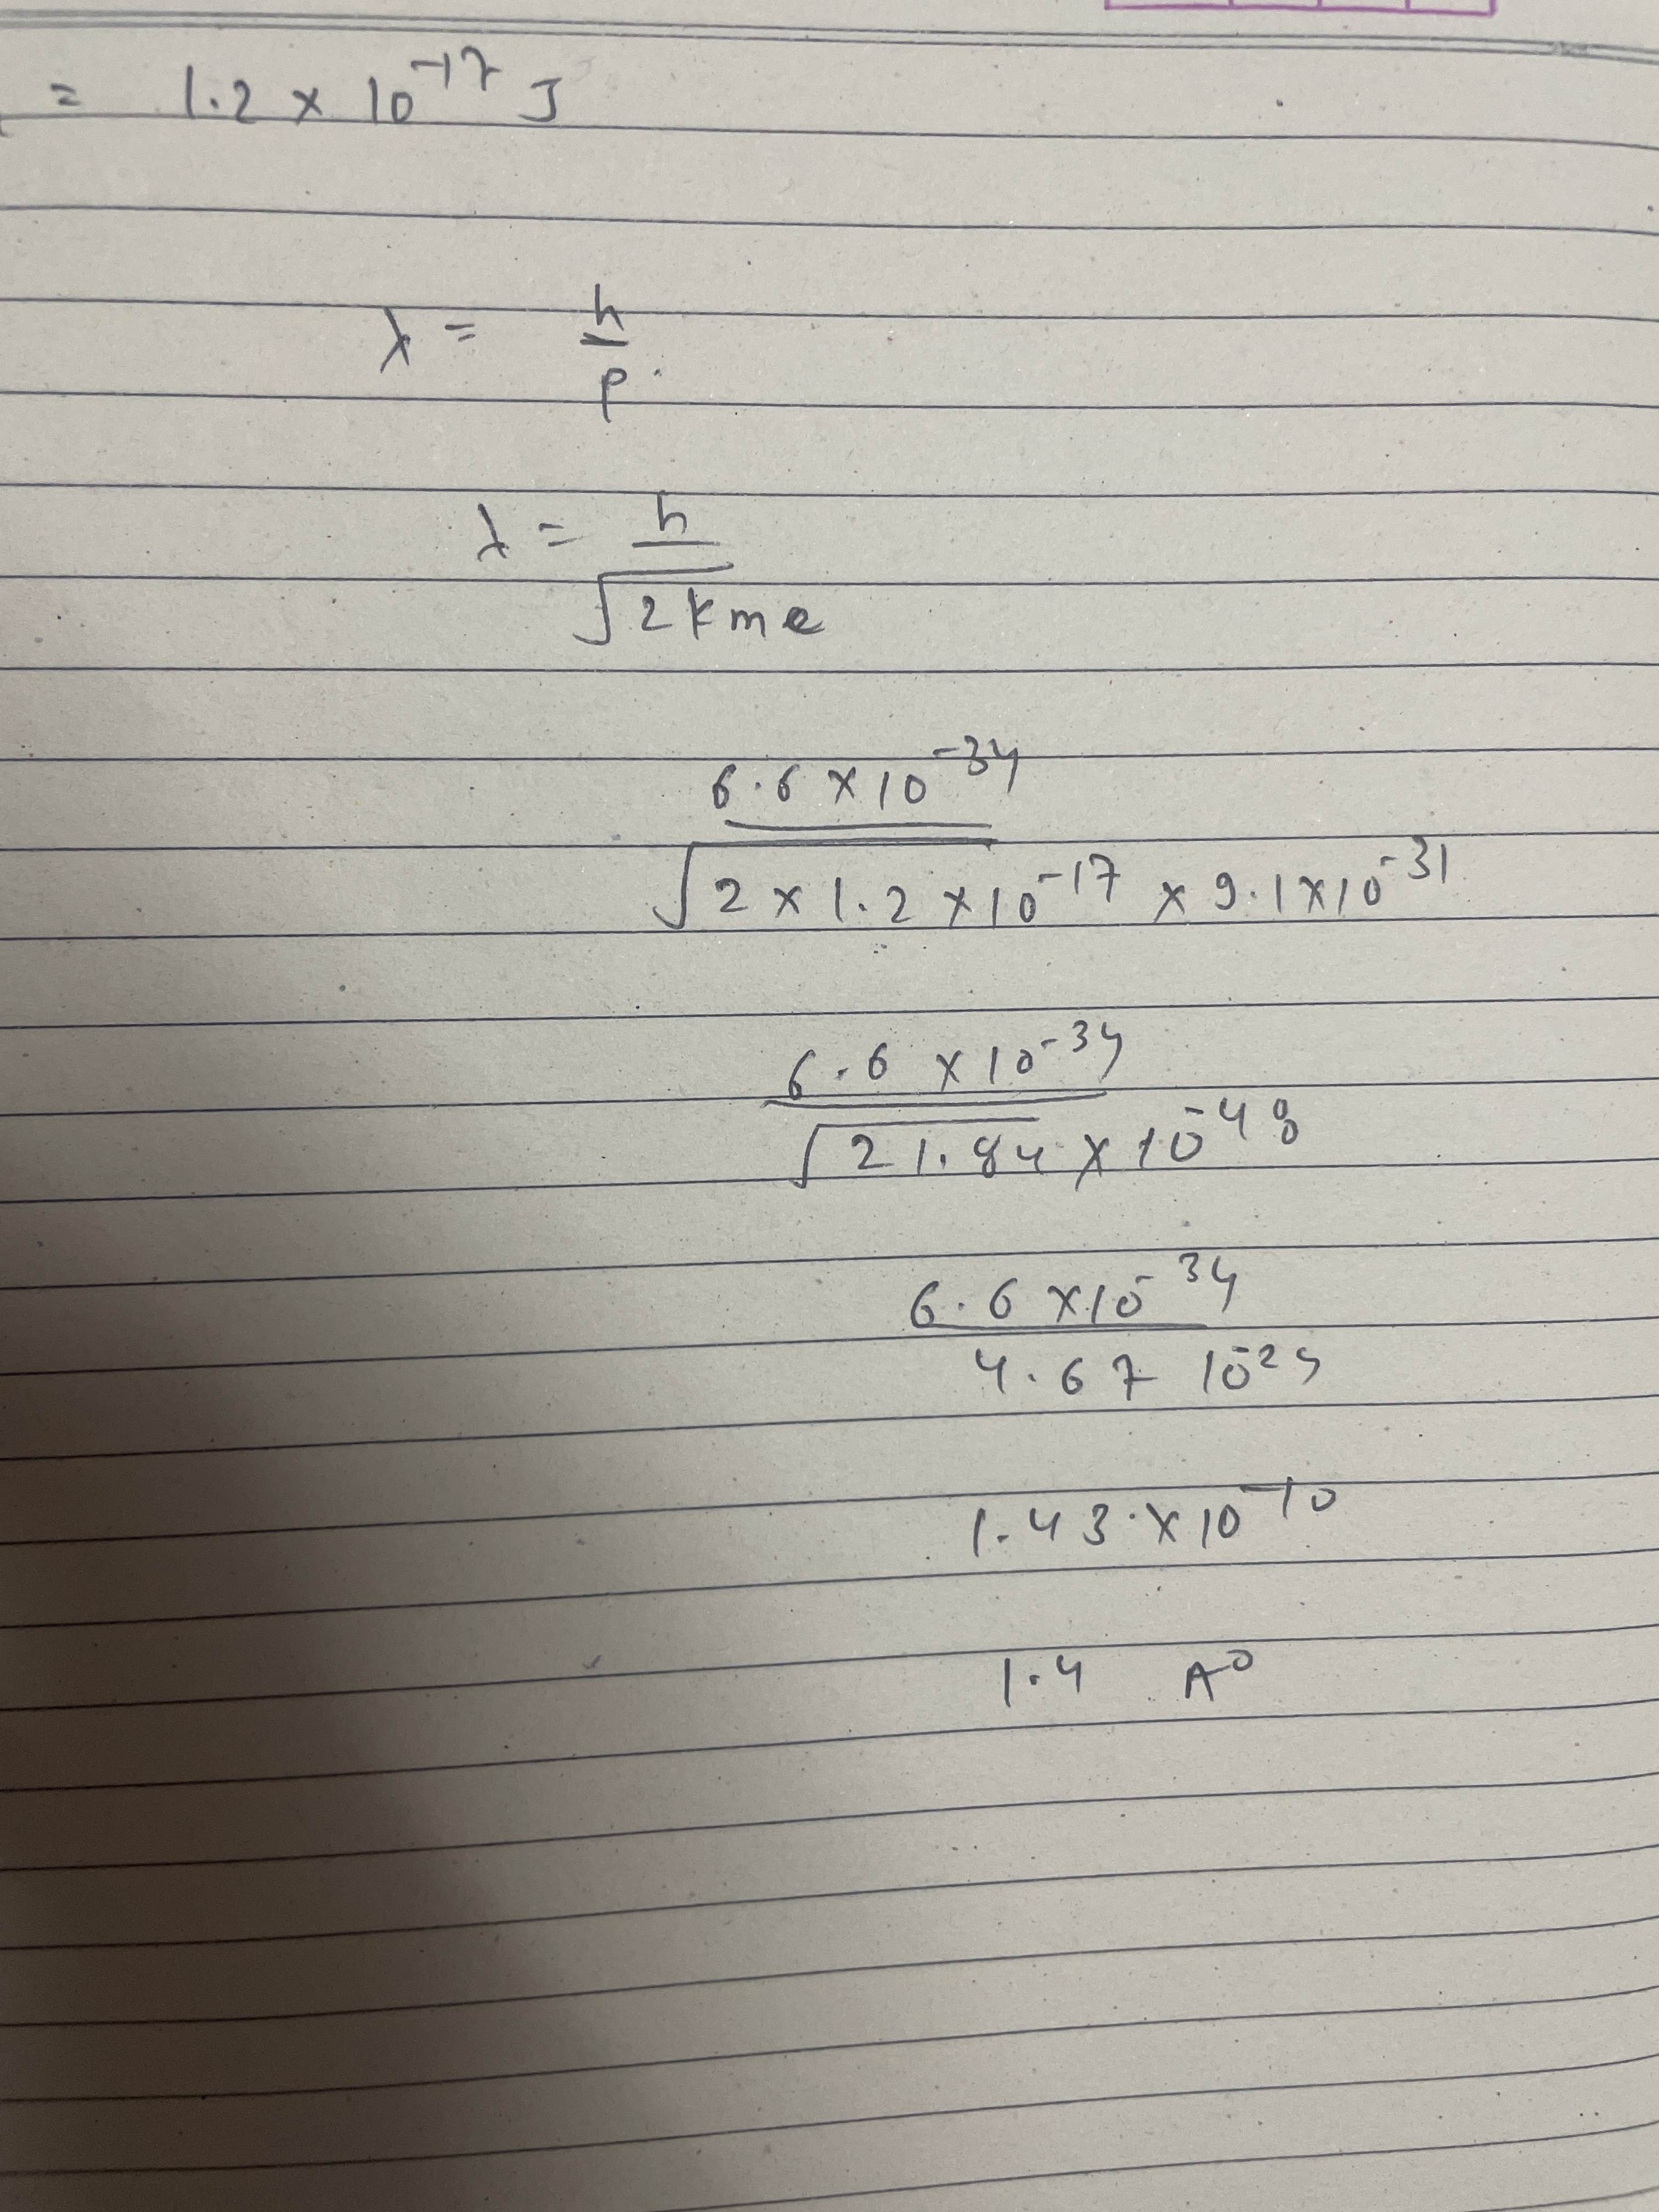 = 1.2 × 10⁻¹⁷ J
λ = h/p
λ = h/√2kme
6.6 × 10⁻³⁴/√2 × 1.2 × 10⁻¹⁷ × 9.1 × 10⁻³¹
6.6 × 10⁻³⁴/√21.84 × 10⁻⁴⁸
6.6 × 10⁻³⁴/4.67 10⁻²⁴
1.43 × 10⁻¹⁰
1.4 A⁰